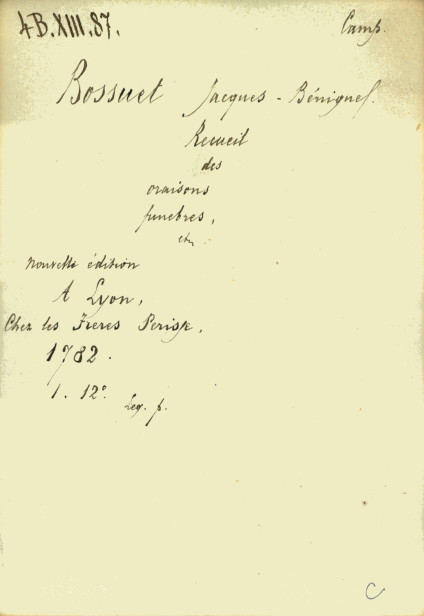 4B.XIII.87. Camp.
Bossuet Jacques-Bénigne.
Recueil
des
oraisons
funebres,
etc.
Nouvelle édition
A Lyon,
Chez les Freres Perisse,
1782.
1. 12°.
Leg. p.
C